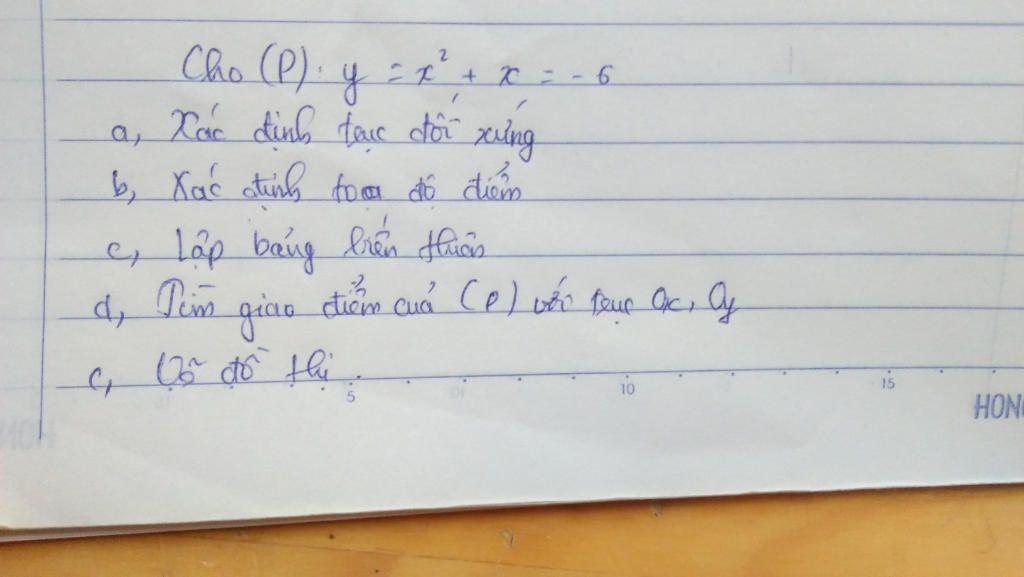 Cho (P): y = x² + x = - 6
a, Xác định trục đối xứng
b, Xác định toạ độ điểm
c, Lập bảng biến thiên
d, Tìm giao điểm của (P) với trục Ox, Oy
c, Vẽ đồ thị.
5 10 15
HONG